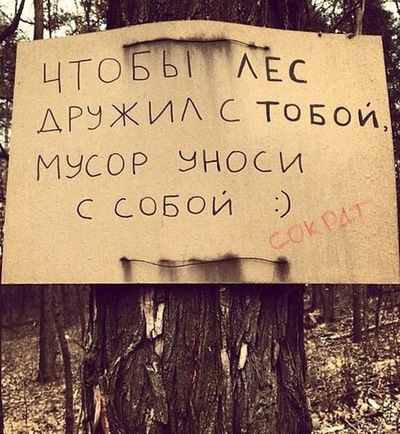 ЧТОБЫ ЛЕС
ДРУЖИЛ С ТОБОЙ,
МУСОР УНОСИ
С СОБОЙ :)
СОКРАТ